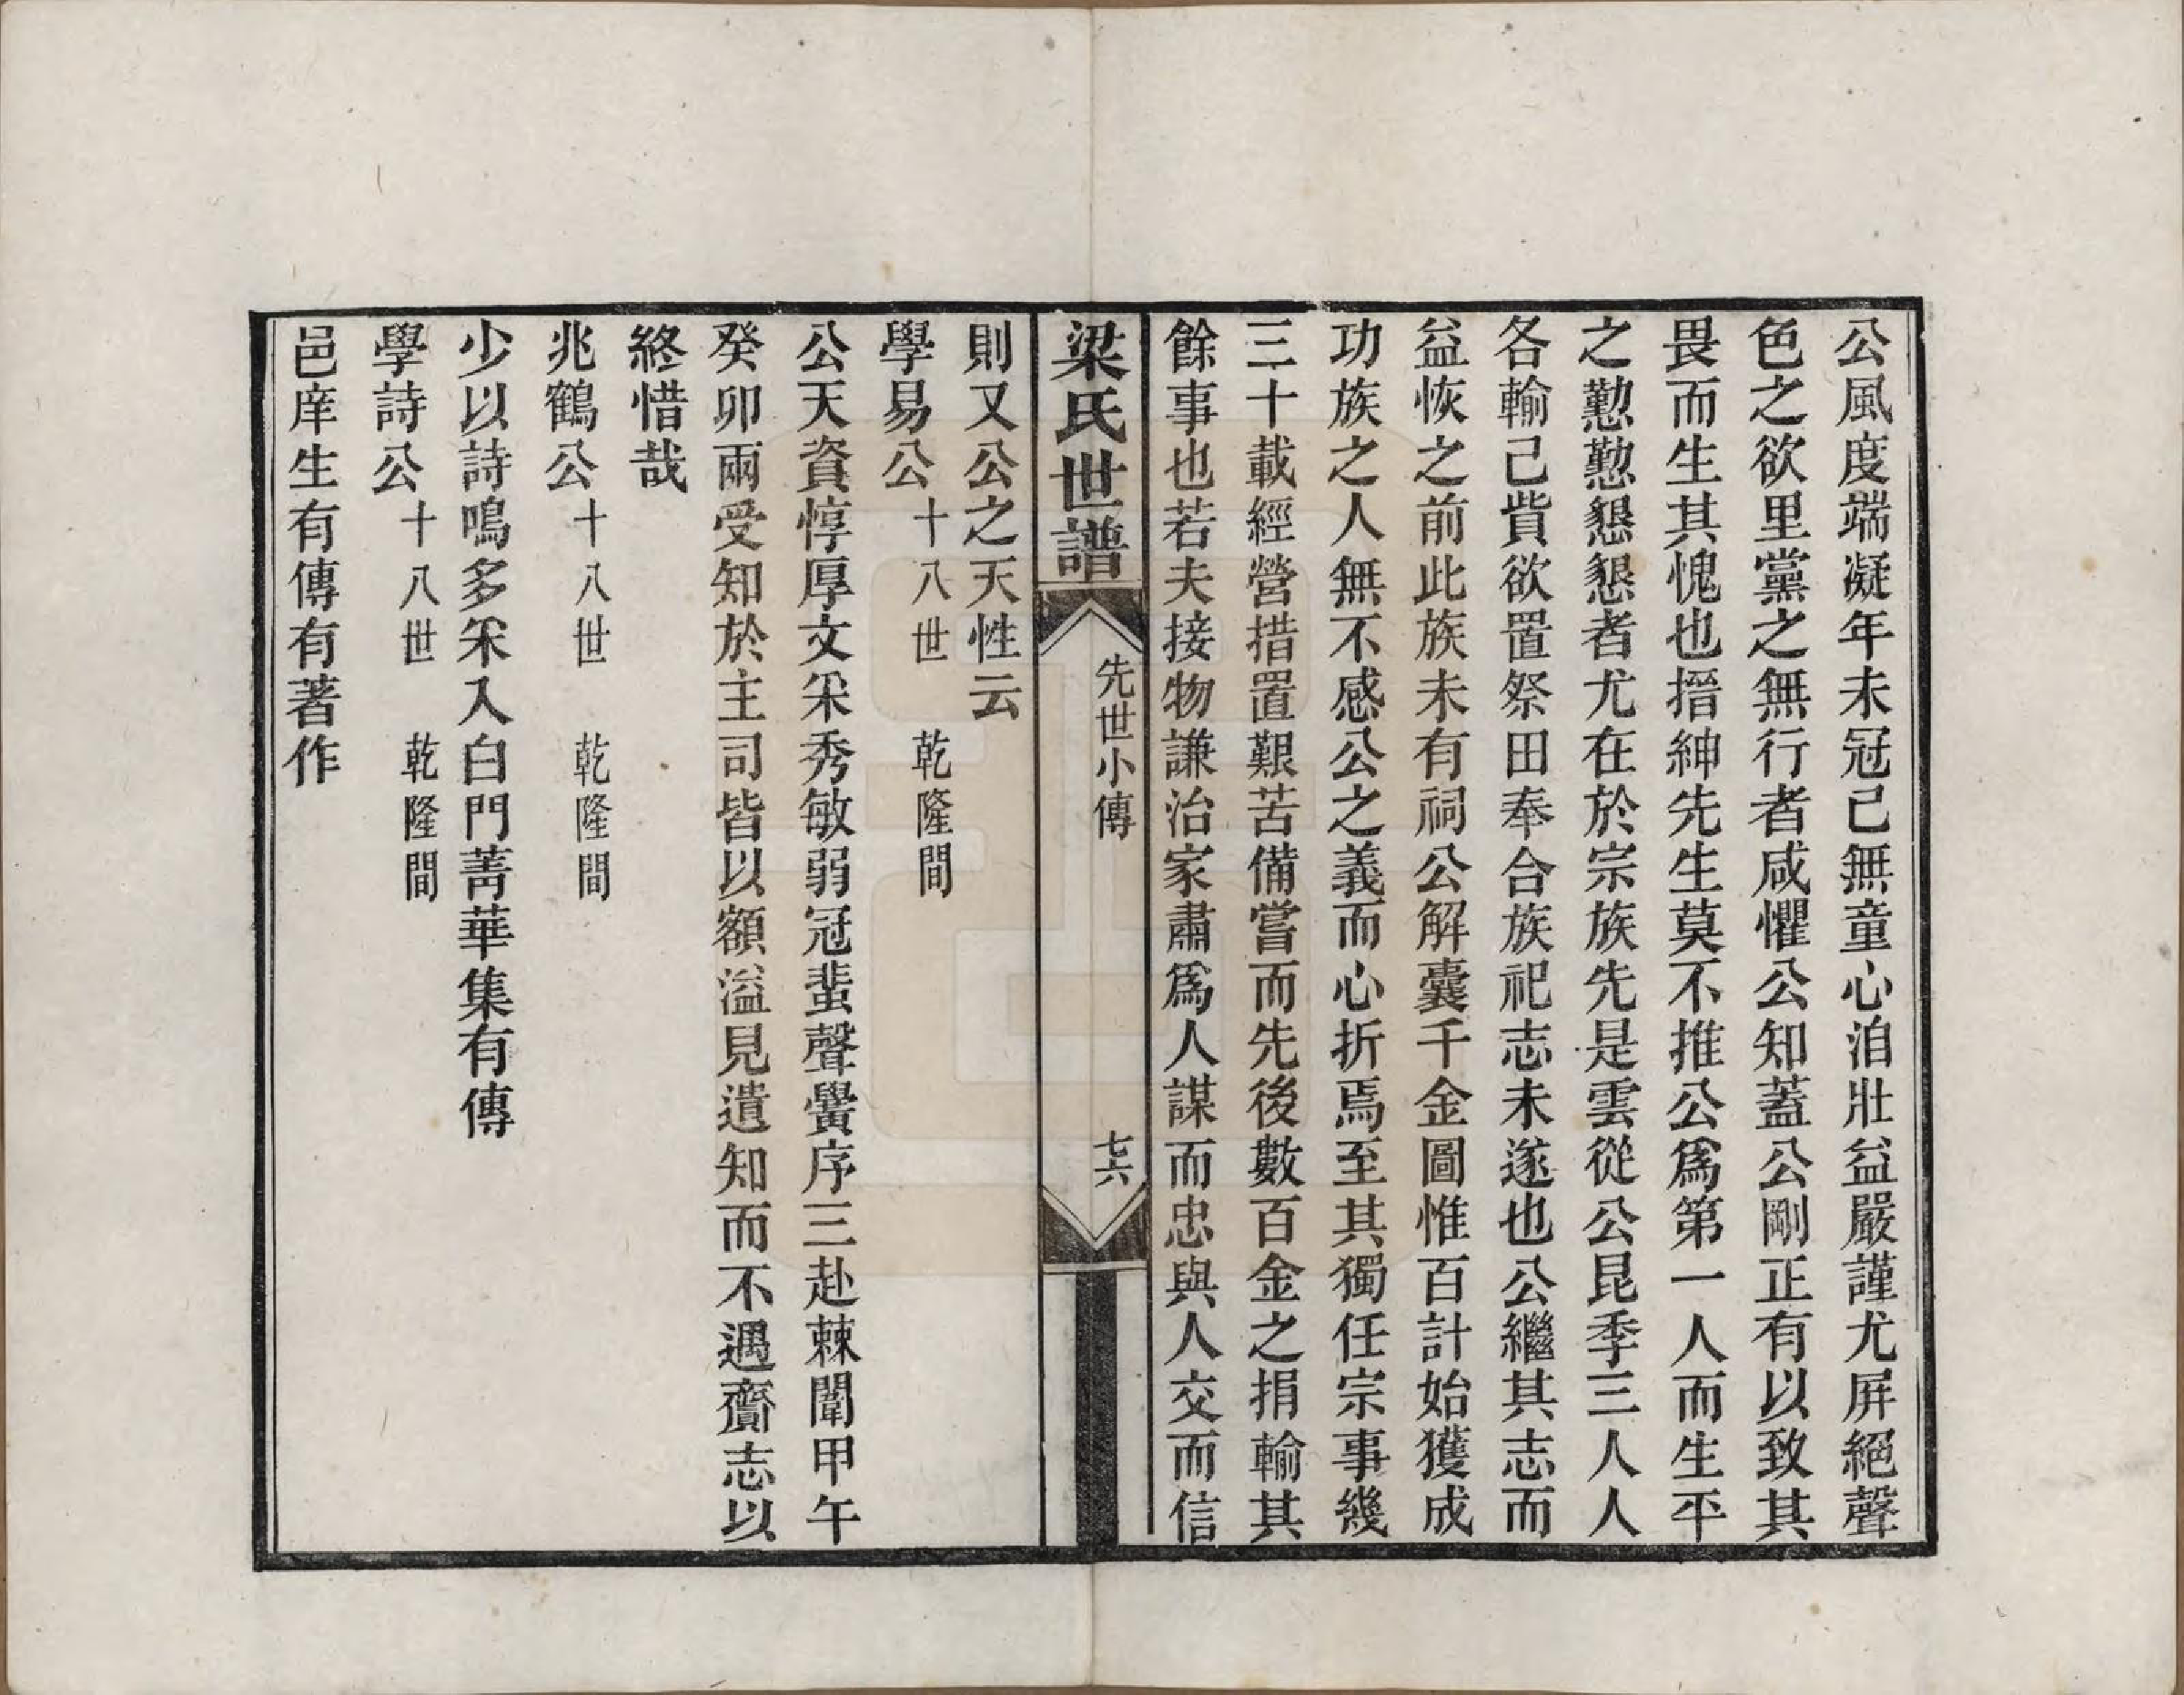 公風度端凝年未冠已無童心洎壯益嚴謹尤屏絕聲
色之欲里黨之無行者咸懼公知蓋公剛正有以致其
畏而生其愧也搢紳先生莫不推公爲第一人而生平
之懃懃懇懇者尤在於宗族先是雲從公昆季三人人
各輸己貲欲置祭田奉合族祀志未遂也公繼其志而
益恢之前此族未有祠公解囊千金圖惟百計始獲成
功族之人無不感公之義而心折焉至其獨任宗事幾
三十載經營措置艱苦備嘗而先後數百金之捐輸其
餘事也若夫接物謙治家肅爲人謀而忠與人交而信
梁氏世譜 先世小傳 七六
則又公之天性云
學易公 十八世 乾隆間
公天資惇厚文采秀敏弱冠蜚聲黌序三赴棘闈甲午
癸卯兩受知於主司皆以額溢見遺知而不遇齎志以
終惜哉
兆鶴公 十八世 乾隆間
少以詩鳴多采入白門菁華集有傳
學詩公 十八世 乾隆間
邑庠生有傳有著作